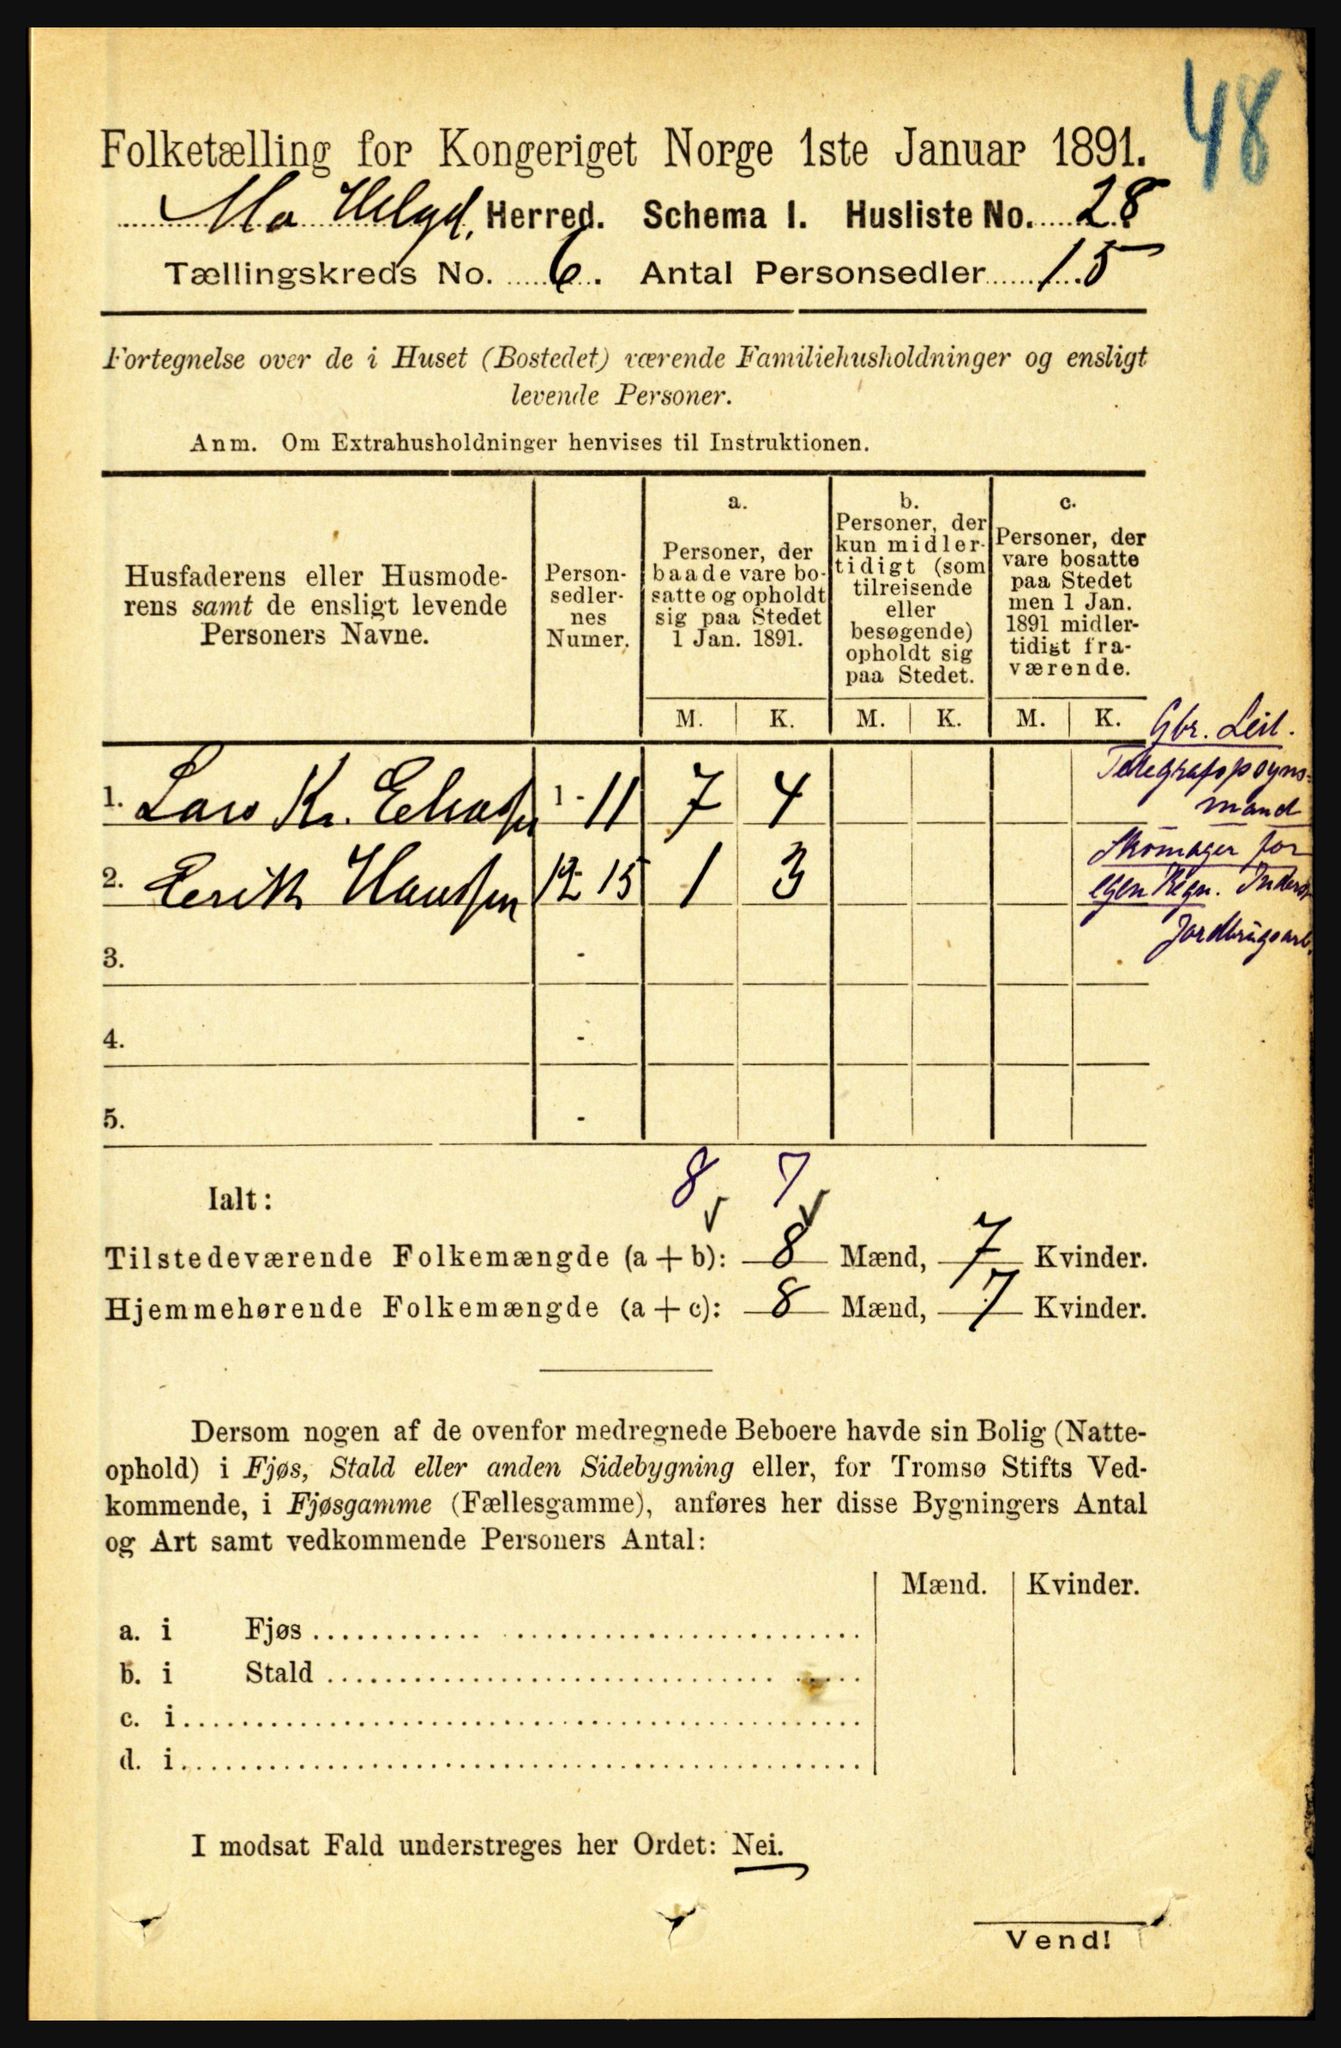 48
Folketælling for Kongeriget Norge 1ste Januar 1891.
Mo Helgld. Herred. Schema I. Husliste No. 28
Tællingskreds No. 6. Antal Personsedler 15
Fortegnelse over de i Huset (Bostedet) værende Familiehusholdninger og ensligt
levende Personer.
Anm. Om Extrahusholdninger henvises til Instruktionen.
Husfaderens eller Husmode-
rens samt de ensligt levende
Personers Navne.
Person-
sedler-
nes
Numer.
a.
Personer, der
baade vare bo-
satte og opholdt
sig paa Stedet
1 Jan. 1891.
b.
Personer, der
kun midler-
tidigt (som
tilreisende
eller
besøgende)
opholdt sig
paa Stedet.
c.
Personer, der
vare bosatte
paa Stedet
men 1 Jan.
1891 midler-
tidigt fra-
værende.
M. K. M. K. M. K.
Gbr. Leil.
Telegrafopsyns-
mand
1. Lars Kr. Eliassen 1 - 11 7 4
Skomager for
2. Erik Hanssen 12 - 15 1 3
egen Regn.
Jordbrugsarb.
3. -
4. -
5. -
Ialt: 8 7
Tilstedeværende Folkemængde (a + b): 8 Mænd, 7 Kvinder.
Hjemmehørende Folkemængde (a + c): 8 Mænd, 7 Kvinder.
Dersom nogen af de ovenfor medregnede Beboere havde sin Bolig (Natte-
ophold) i Fjøs, Stald eller anden Sidebygning eller, for Tromsø Stifts Ved-
kommende, i Fjøsgamme (Fællesgamme), anføres her disse Bygningers Antal
og Art samt vedkommende Personers Antal:
Mænd. Kvinder.
a. i Fjøs
b. i Stald
c. i
d. i
I modsat Fald understreges her Ordet: Nei.
Vend!